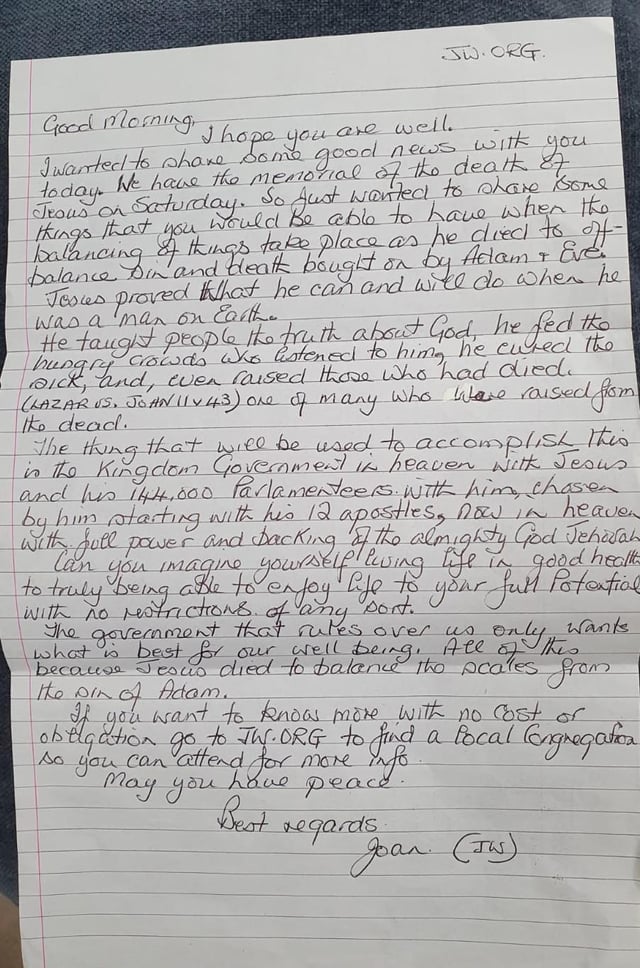 JW.ORG.
Good Morning,
I hope you are well.
I wanted to share some good news with you
today. We have the memorial of the death of
Jesus on Saturday. So just wanted to share some
things that you would be able to have when the
balancing of things take place as he died to off-
balance sin and death bought on by Adam + Eve.
Jesus proved what he can and will do when he
was a man on Earth.
He taught people the truth about God, he fed the
hungry crowds who listened to him, he cured the
sick, and, even raised those who had died.
(LAZARUS. JOHN 11 v 43) one of many who were raised from
the dead.
The thing that will be used to accomplish this
is the Kingdom Government in heaven with Jesus
and his 144,000 Parlamenteers. with him, chosen
by him starting with his 12 apostles, now in heaven
with full power and backing of the almighty God Jehovah
Can you imagine yourself living life in good health
to truly being able to enjoy life to your full Potential
with no restrictions of any sort.
The government that rules over us only wants
what is best for our well being. All of this
because Jesus died to balance the scales from
the sin of Adam.
If you want to know more with no cost or
obligation go to JW.ORG to find a local Congregation
so you can attend for more info.
May you have peace.
Best regards.
Joan. (JW)